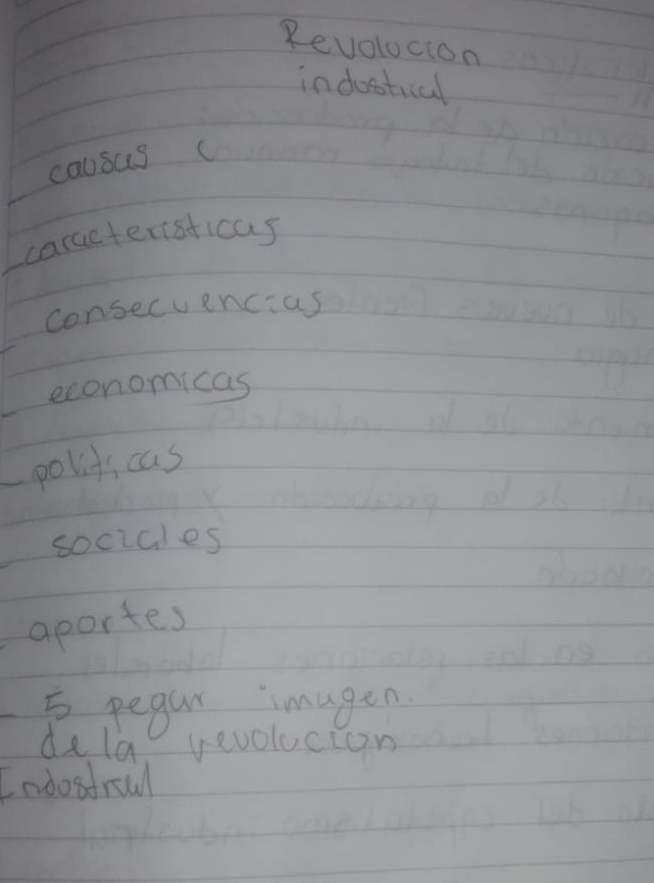 Revolucion
indostrial
causas
- caracteristicas
- consecuencias
- economicas
- politicas
- sociales
- aportes
- 5 pegar imagen.
de la revolucion
Indostrial